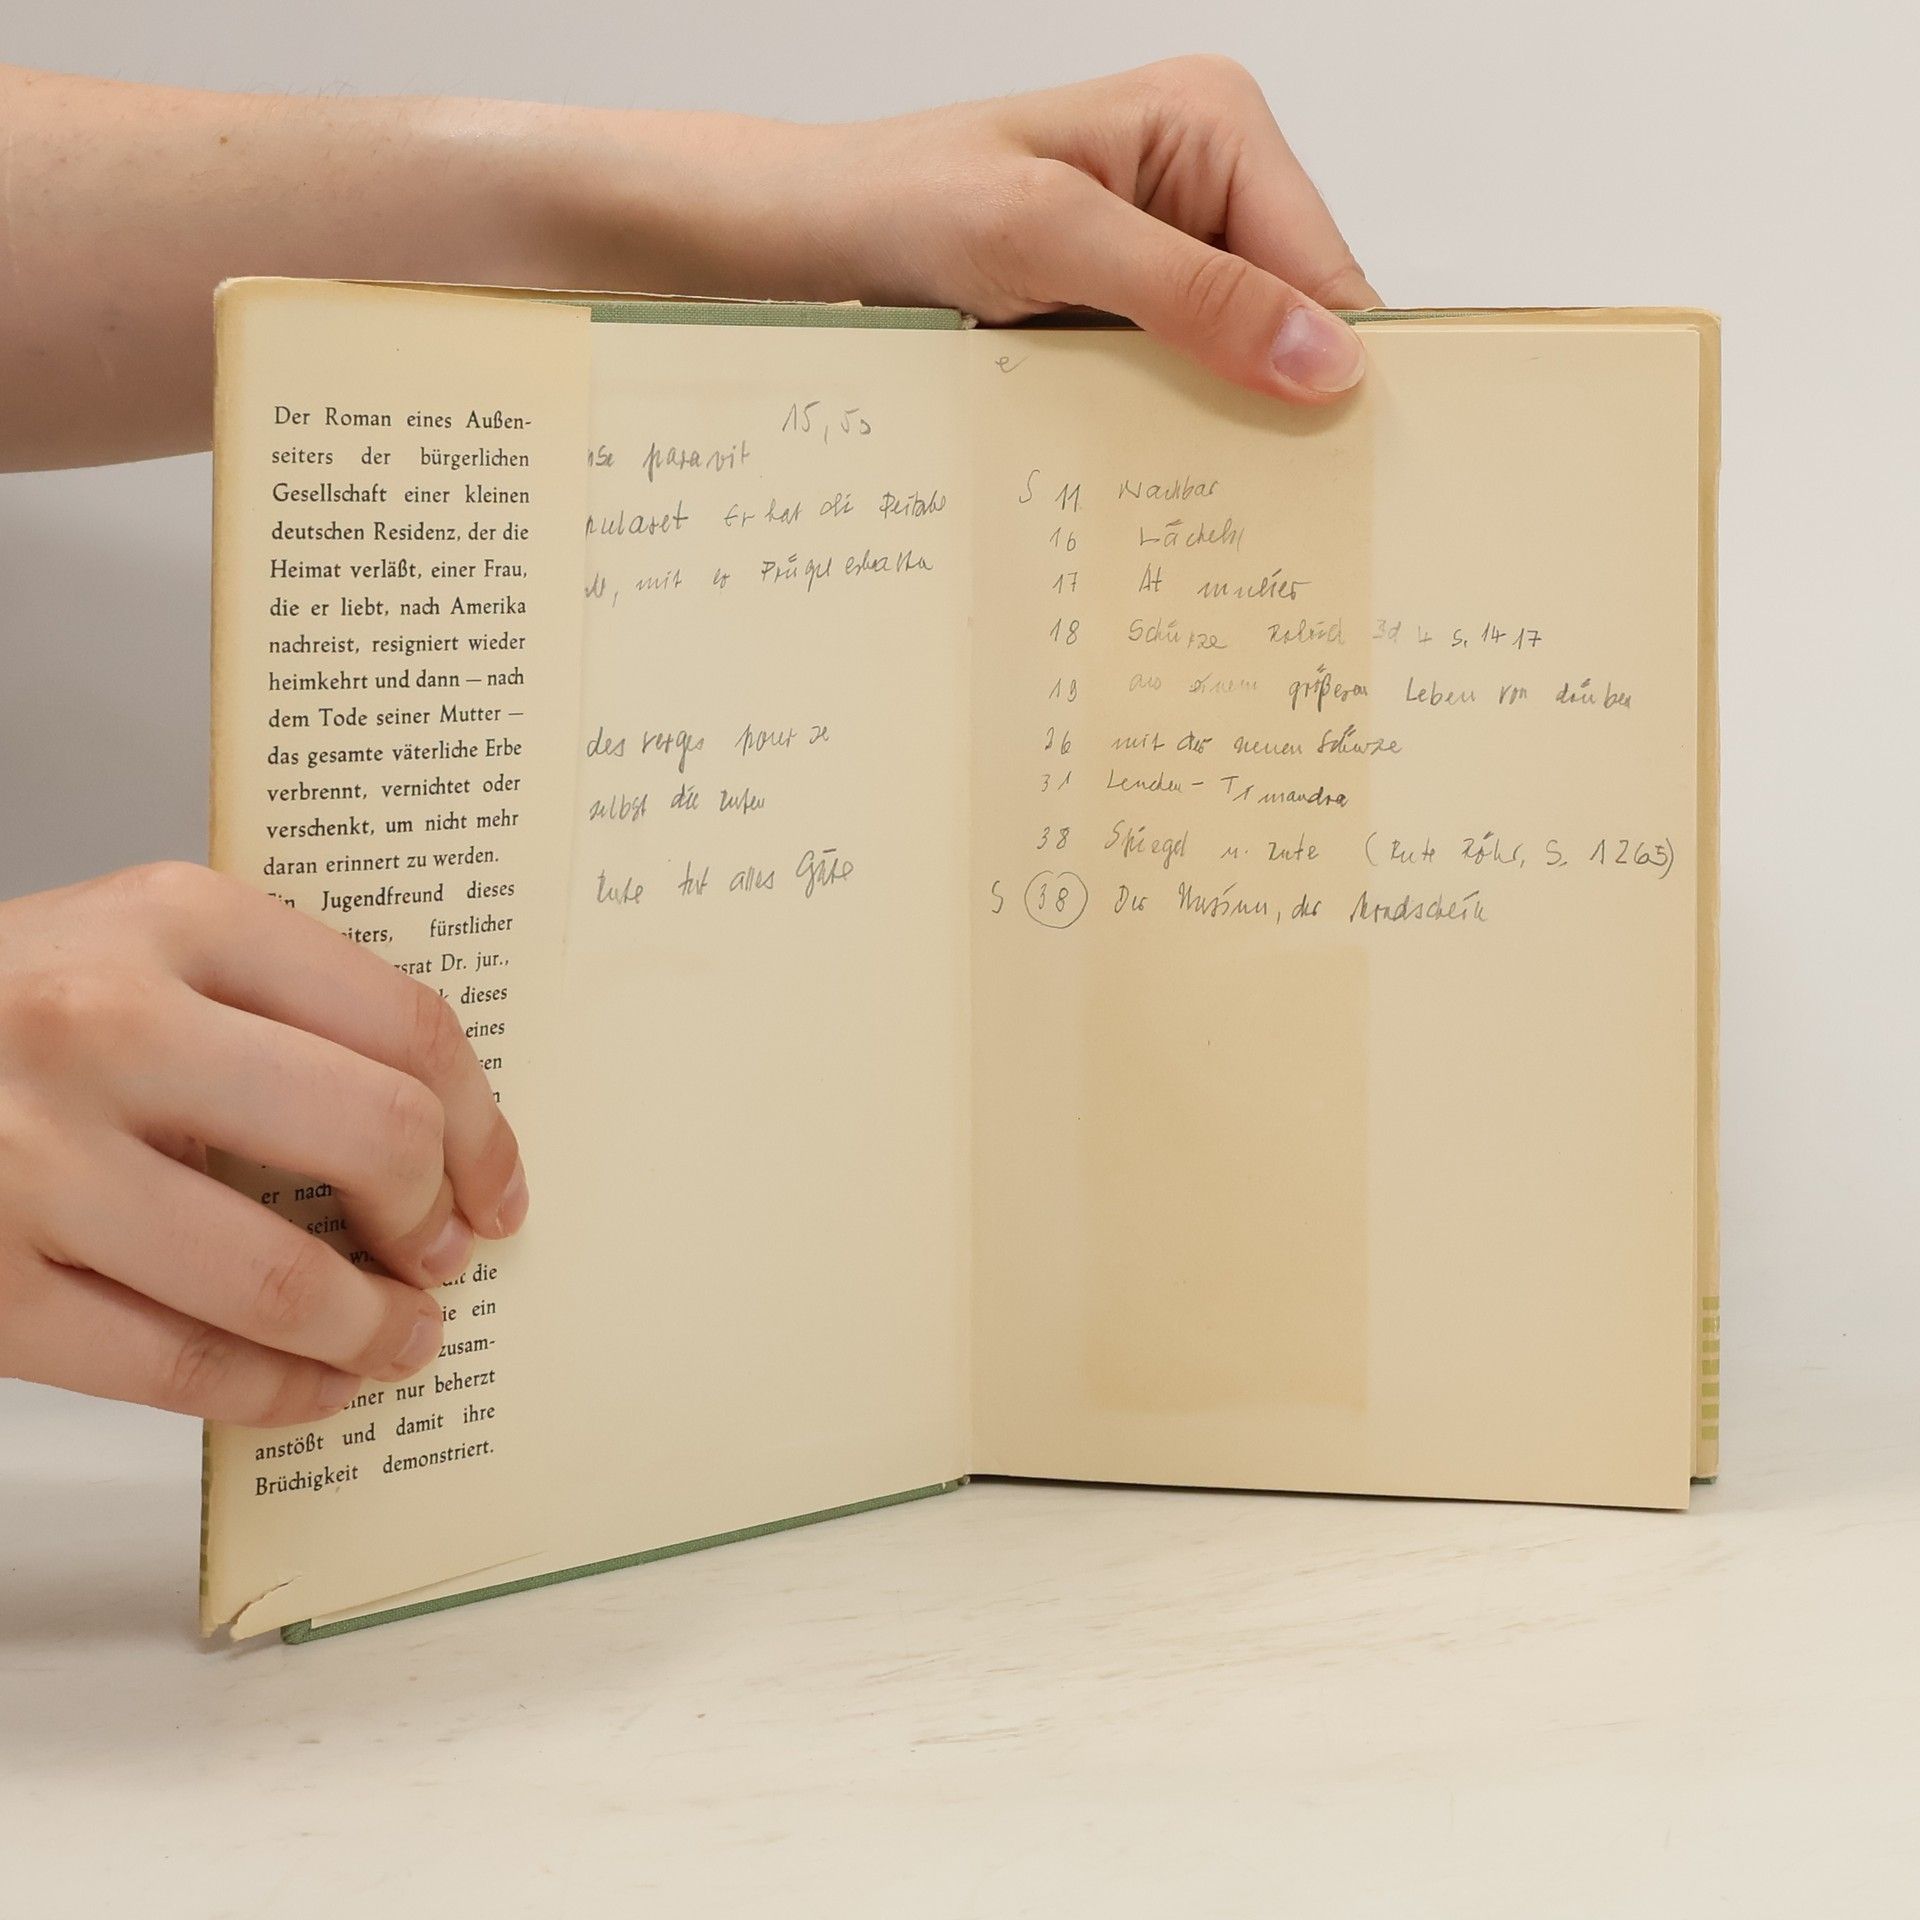 Der Roman eines Außen-
seiters der bürgerlichen
Gesellschaft einer kleinen
deutschen Residenz, der die
Heimat verläßt, einer Frau,
die er liebt, nach Amerika
nachreist, resigniert wieder
heimkehrt und dann — nach
dem Tode seiner Mutter —
das gesamte väterliche Erbe
verbrennt, vernichtet oder
verschenkt, um nicht mehr
daran erinnert zu werden.
Ein Jugendfreund dieses
fürstlicher
Dr. jur.,
dieses
eines
er nach
seine
die
ein
zusam-
einer nur beherzt
anstößt und damit ihre
Brüchigkeit demonstriert.
15,50
paravit
Er hat die
mit er Prügel
des verges pour se
selbst die Ruten
Rute tut alles Gute
e
S 11 Nachbar
16 Lächeln
17 At mulier
18 Schürze Bd 4 S. 14 17
19 aus einem größeren Leben von drüben
26 mit der neuen Schürze
31 Lenden - Timandra
38 Spiegel u. Rute (Rute Röhr, S. 1265)
S 38 Der Unsinn, der Mondschein